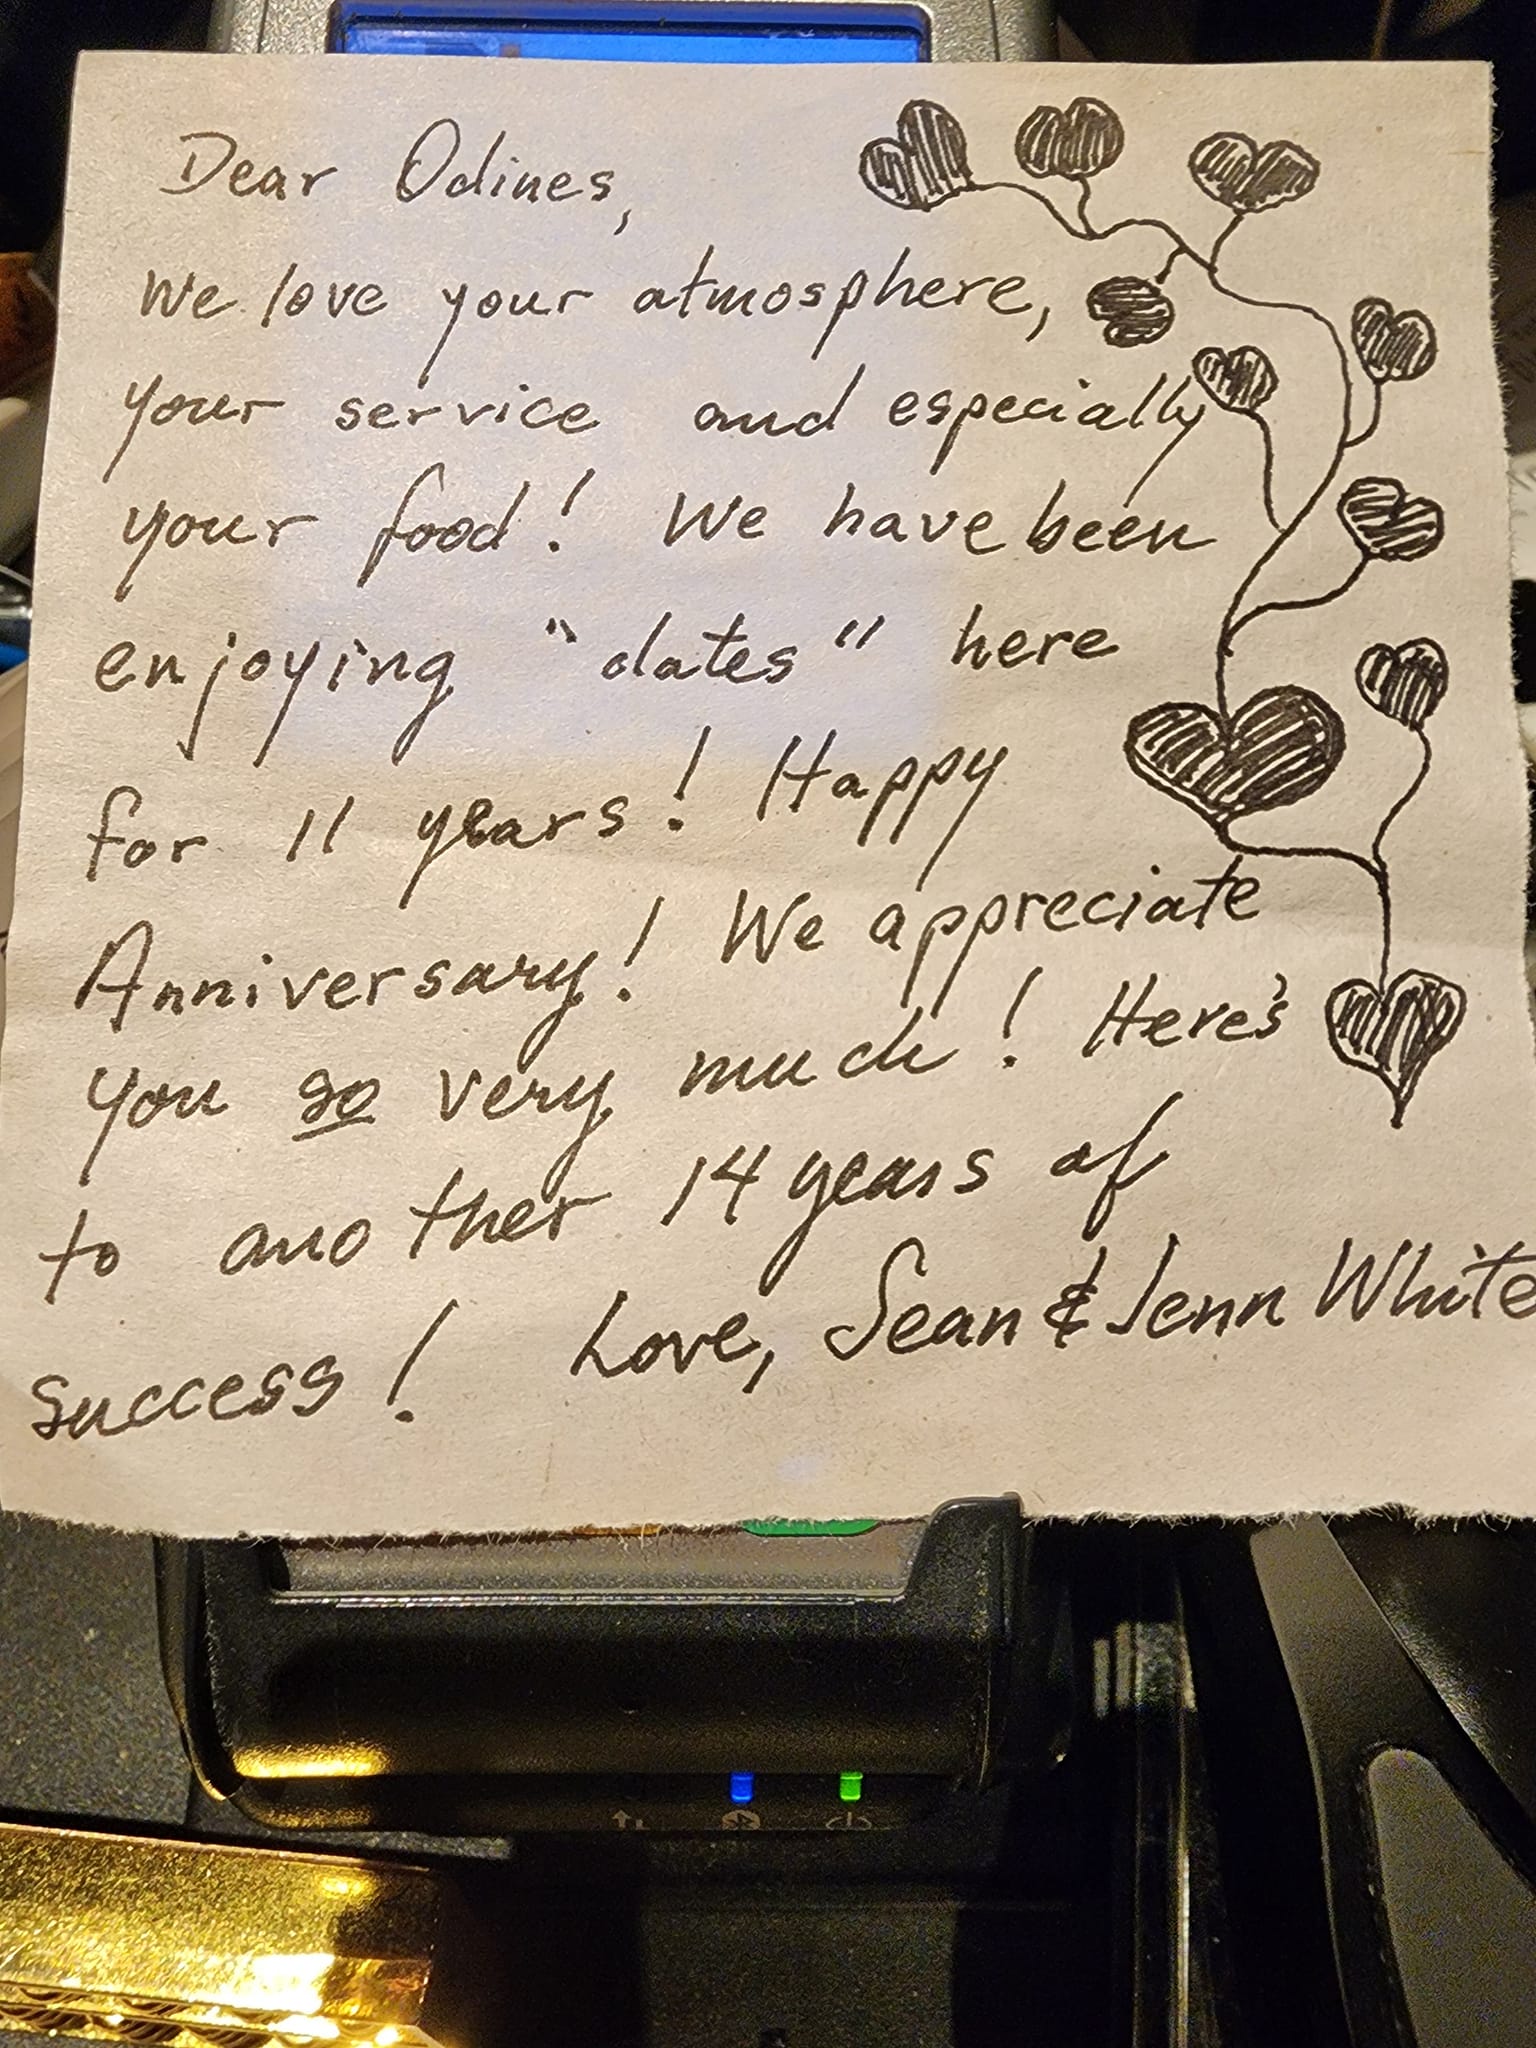 Dear Odines,
We love your atmosphere,
your service and especially
your food! We have been
enjoying "dates" here
for 11 years! Happy
Anniversary! We appreciate
you so very much! Here's
to another 14 years of
success! Love, Sean & Jenn White